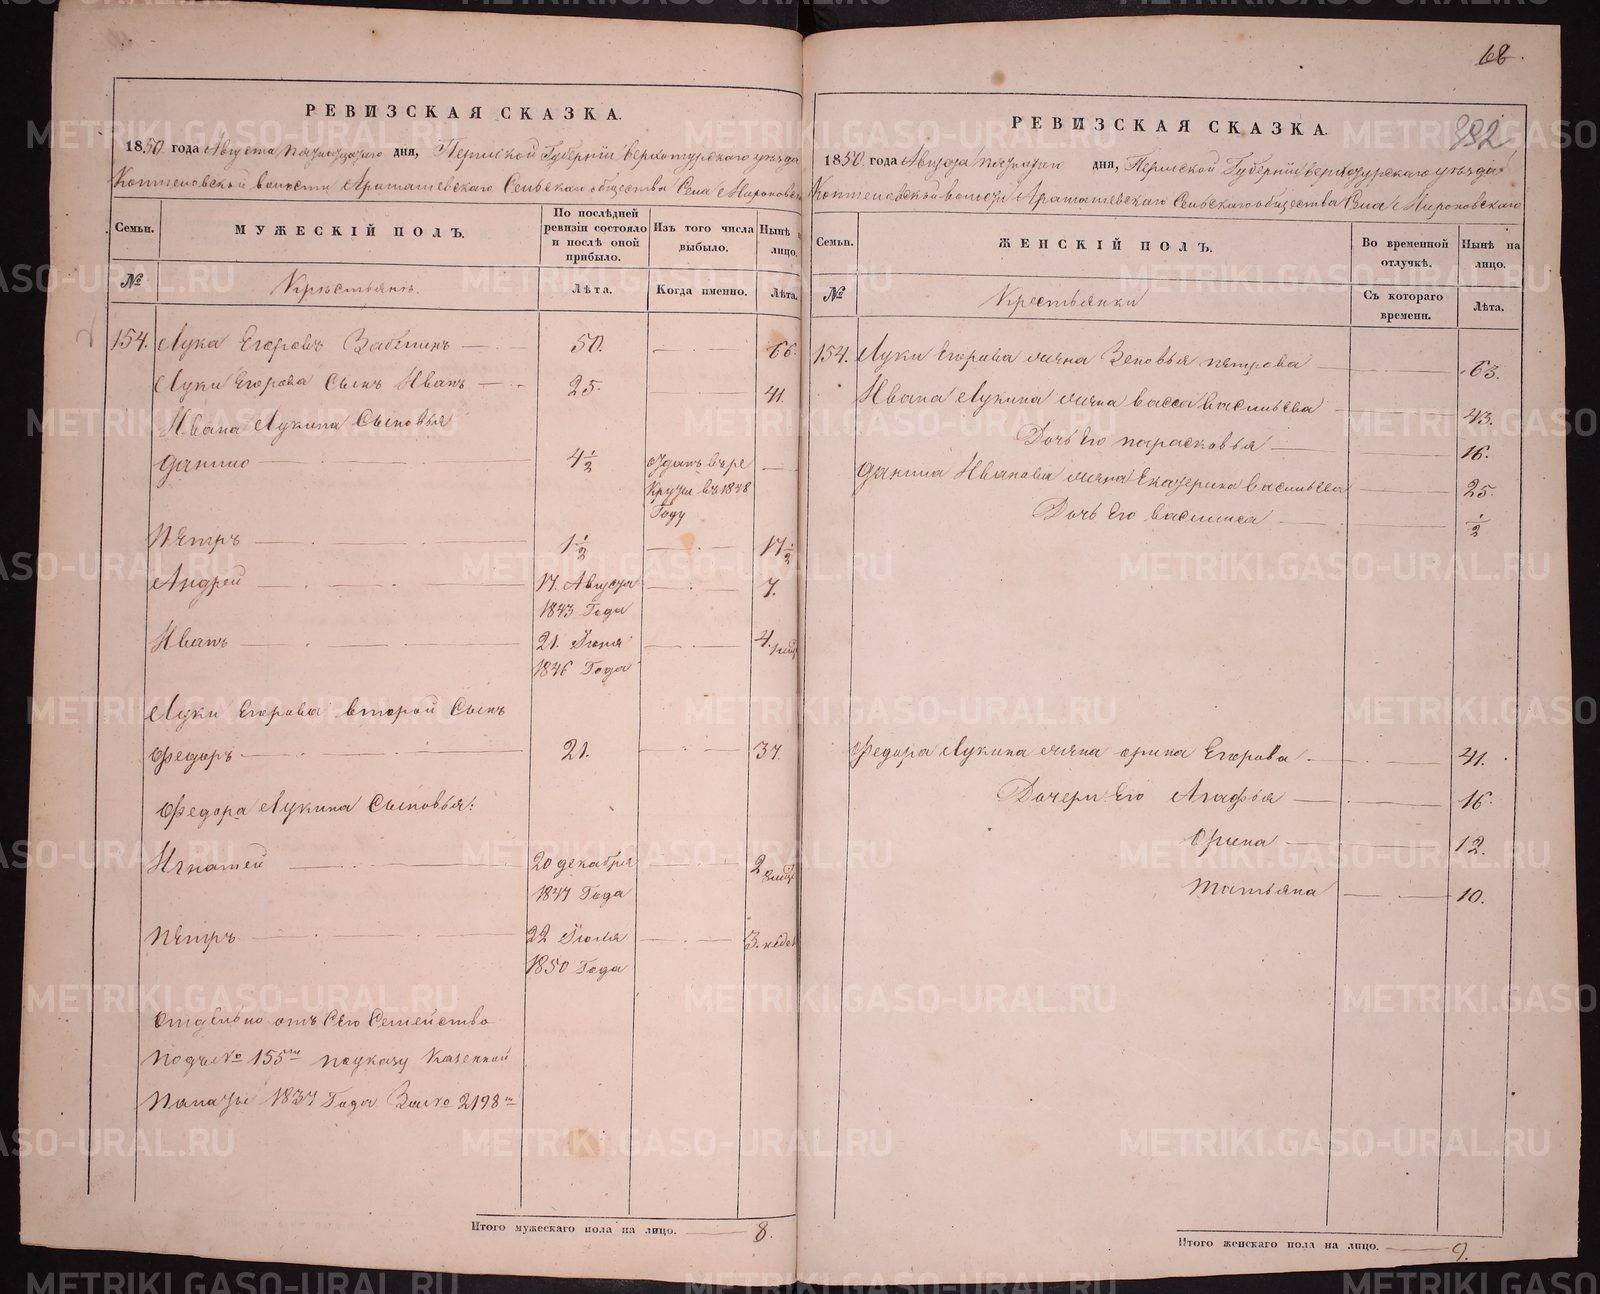 РЕВИЗСКАЯ СКАЗКА.
1850 года Августа дня, Пермской Губернии верхотурскаго уезда
волости Сельскаго общества Села
Семьи.
МУЖЕСКІЙ ПОЛЪ.
По послѣдней ревизіи состояло и послѣ оной прибыло.
Изъ того числа выбыло.
Нынѣ
лицо.
№
Крестьянъ.
Лѣта.
Когда именно.
Лѣта.
154. Лука Егоровъ 50. 66.
Луки Егорова Сынъ Иванъ 25. 41.
Ивана Лукина Сыновья
Данило 4½ въ ре
круты въ 1848
Году
Пѣтръ 1½ 17½
Андрей 17. Августа 7.
1843 Года
Иванъ 21. Іюня 4.
1846 Года
Луки Егорова второй Сынъ
Федоръ 21. 37.
Федора Лукина Сыновья:
Игнатей 20 декабря 2
1847 Года
Пѣтръ 22 Іюля 3. недел
1850 Года
отъ Сего Семейство
подъ № 155 по указу Казенной
Палаты 1837 Года За № 2198
Итого мужескаго пола на лицо. 8.
68.
392
РЕВИЗСКАЯ СКАЗКА.
1850 года Августа дня, Пермской Губерніи верхотурскаго уѣзда
волости Сельскаго общества Села
Семьи.
ЖЕНСКІЙ ПОЛЪ.
Во временной отлучкѣ.
Нынѣ на лицо.
№
Крестьянки
Съ котораго времени.
Лѣта.
154. Луки Егорова жена Зеновья пѣтрова 63.
Ивана Лукина жена васса васильева 43.
Дочь Его парасковья 16.
Данила Иванова жена Екатерина васильева 25.
Дочь Его василиса ½
Федора Лукина жена орина Егорова 41.
Дочери Его Агафья 16.
Орина 12.
Татьяна 10.
Итого женскаго пола на лицо. 9.
METRIKI.GASO-URAL.RU